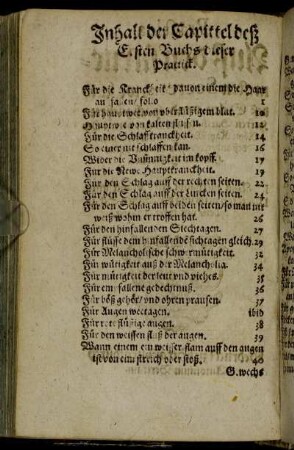 Inhalt der Capittel deß
Ersten Buchs dieser
Practick.
Für die Kranckheit davon einem die Haar
außfallen/folio 1
Für hauptwee von vberflüßigem blůt. 10
Hauptwee von kalten flüssen. 12
Für die Schlaffkranckheit. 14
So einer nit schlaffen kan. 16
Wider die Vnsinnigkeit im kopff. 17
Für die Newe Hauptkranckheit. 19
Für den Schlag auff der rechten seiten. 22
Für den Schlag auff der lincken seiten. 24
Für den Schlag auff beiden seiten/so man nit
weiß wohin er troffen hat. 26
Für den hinfallenden Siechtagen. 27
Für flüsse dem hinfallende siechtagen gleich. 29
Für Melancholische schwermütigkeit. 31
Für wütigkeit auß der Melancholia. 34
Für mütigkeit der leut vnd viehes. 35
Für empfallene gedechtnuß. 36
Für böß gehör/vnd ohren prausen. 37
Für Augen weetagen. ibid
Für rote flüßige augen. 38
Für den weissen fluß der augen. 39
Wann einem ein weisser flam auff den augen
ist von eim streich oder stoß. 40
G.wechs